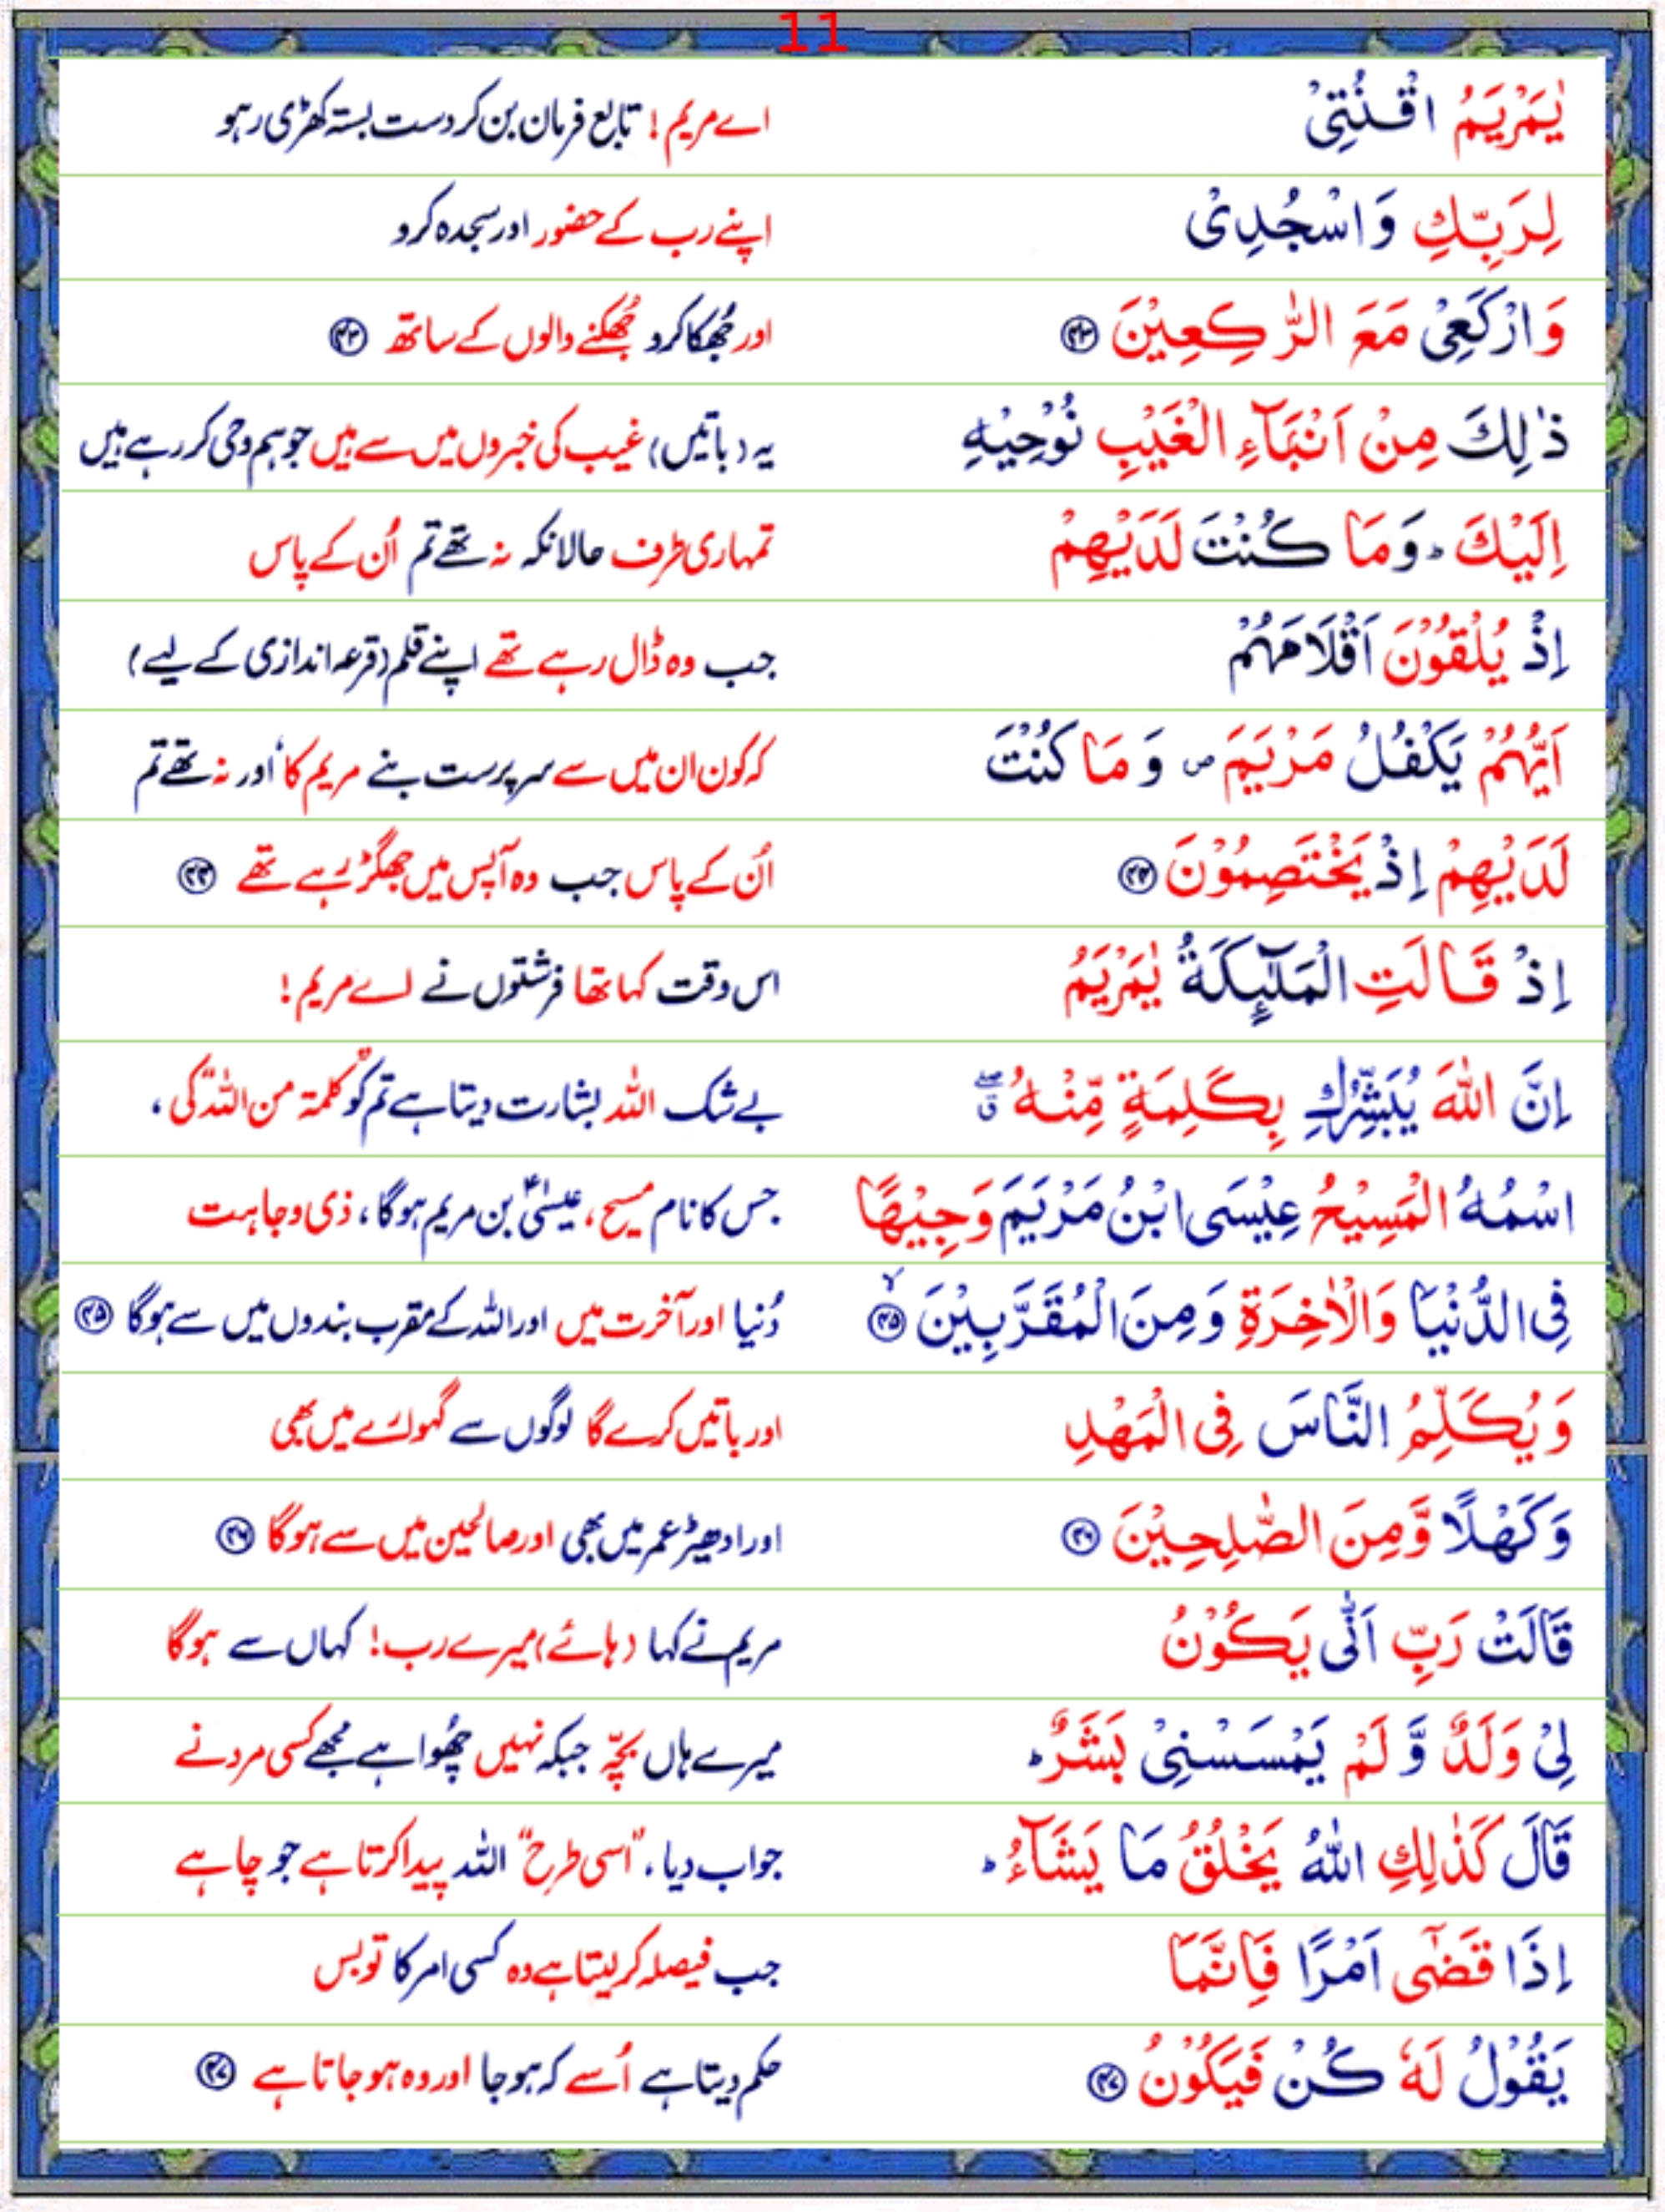 11
يٰمَرْيَمُ اقْنُتِيْ اے مریم! تابع فرمان بن کر دست بستہ کھڑی رہو
لِرَبِّكِ وَاسْجُدِىْ اپنے رب کے حضور اور سجدہ کرو
وَارْكَعِىْ مَعَ الرّٰكِعِيْنَ ﴿۴۳﴾ اور جُھکا کرو جُھکنے والوں کے ساتھ ﴿۴۳﴾
ذٰلِكَ مِنْ اَنْۢبَآءِ الْغَيْبِ نُوْحِيْهِ یہ (باتیں) غیب کی خبروں میں سے ہیں جو ہم وحی کر رہے ہیں
اِلَيْكَ ؕ وَمَا كُنْتَ لَدَيْهِمْ تمہاری طرف حالانکہ نہ تھے تم اُن کے پاس
اِذْ يُلْقُوْنَ اَقْلَامَهُمْ جب وہ ڈال رہے تھے اپنے قلم (قرعہ اندازی کے لیے)
اَيُّهُمْ يَكْفُلُ مَرْيَمَ ۪ وَمَا كُنْتَ کہ کون ان میں سے سرپرست بنے مریم کا اور نہ تھے تم
لَدَيْهِمْ اِذْ يَخْتَصِمُوْنَ ﴿۴۴﴾ اُن کے پاس جب وہ آپس میں جھگڑ رہے تھے ﴿۴۴﴾
اِذْ قَالَتِ الْمَلٰٓئِكَةُ يٰمَرْيَمُ اس وقت کہا تھا فرشتوں نے اے مریم!
اِنَّ اللّٰهَ يُبَشِّرُكِ بِكَلِمَةٍ مِّنْهُ ۖق بے شک اللہ بشارت دیتا ہے تم کو "کلمۃ من اللہ" کی،
اسْمُهُ الْمَسِيْحُ عِيْسَى ابْنُ مَرْيَمَ وَجِيْهًا جس کا نام مسیح، عیسیٰؑ بن مریم ہوگا، ذی وجاہت
فِى الدُّنْيَا وَالْاٰخِرَةِ وَمِنَ الْمُقَرَّبِيْنَ ۙ﴿۴۵﴾ دُنیا اور آخرت میں اور اللہ کے مقرب بندوں میں سے ہوگا ﴿۴۵﴾
وَيُكَلِّمُ النَّاسَ فِى الْمَهْدِ اور باتیں کرے گا لوگوں سے گہوارے میں بھی
وَكَهْلًا وَّمِنَ الصّٰلِحِيْنَ ﴿۴۶﴾ اور ادھیڑ عمر میں بھی اور صالحین میں سے ہوگا ﴿۴۶﴾
قَالَتْ رَبِّ اَنّٰى يَكُوْنُ مریم نے کہا (ہائے) میرے رب! کہاں سے ہوگا
لِىْ وَلَدٌ وَّلَمْ يَمْسَسْنِىْ بَشَرٌ ؕ میرے ہاں بچّہ جبکہ نہیں چھُوا ہے مجھے کسی مرد نے
قَالَ كَذٰلِكِ اللّٰهُ يَخْلُقُ مَا يَشَآءُ ؕ جواب دیا، "اسی طرح" اللہ پیدا کرتا ہے جو چاہے
اِذَا قَضٰٓى اَمْرًا فَاِنَّمَا جب فیصلہ کر لیتا ہے وہ کسی امر کا تو بس
يَقُوْلُ لَهٗ كُنْ فَيَكُوْنُ ﴿۴۷﴾ حکم دیتا ہے اُسے کہ ہو جا اور وہ ہو جاتا ہے ﴿۴۷﴾